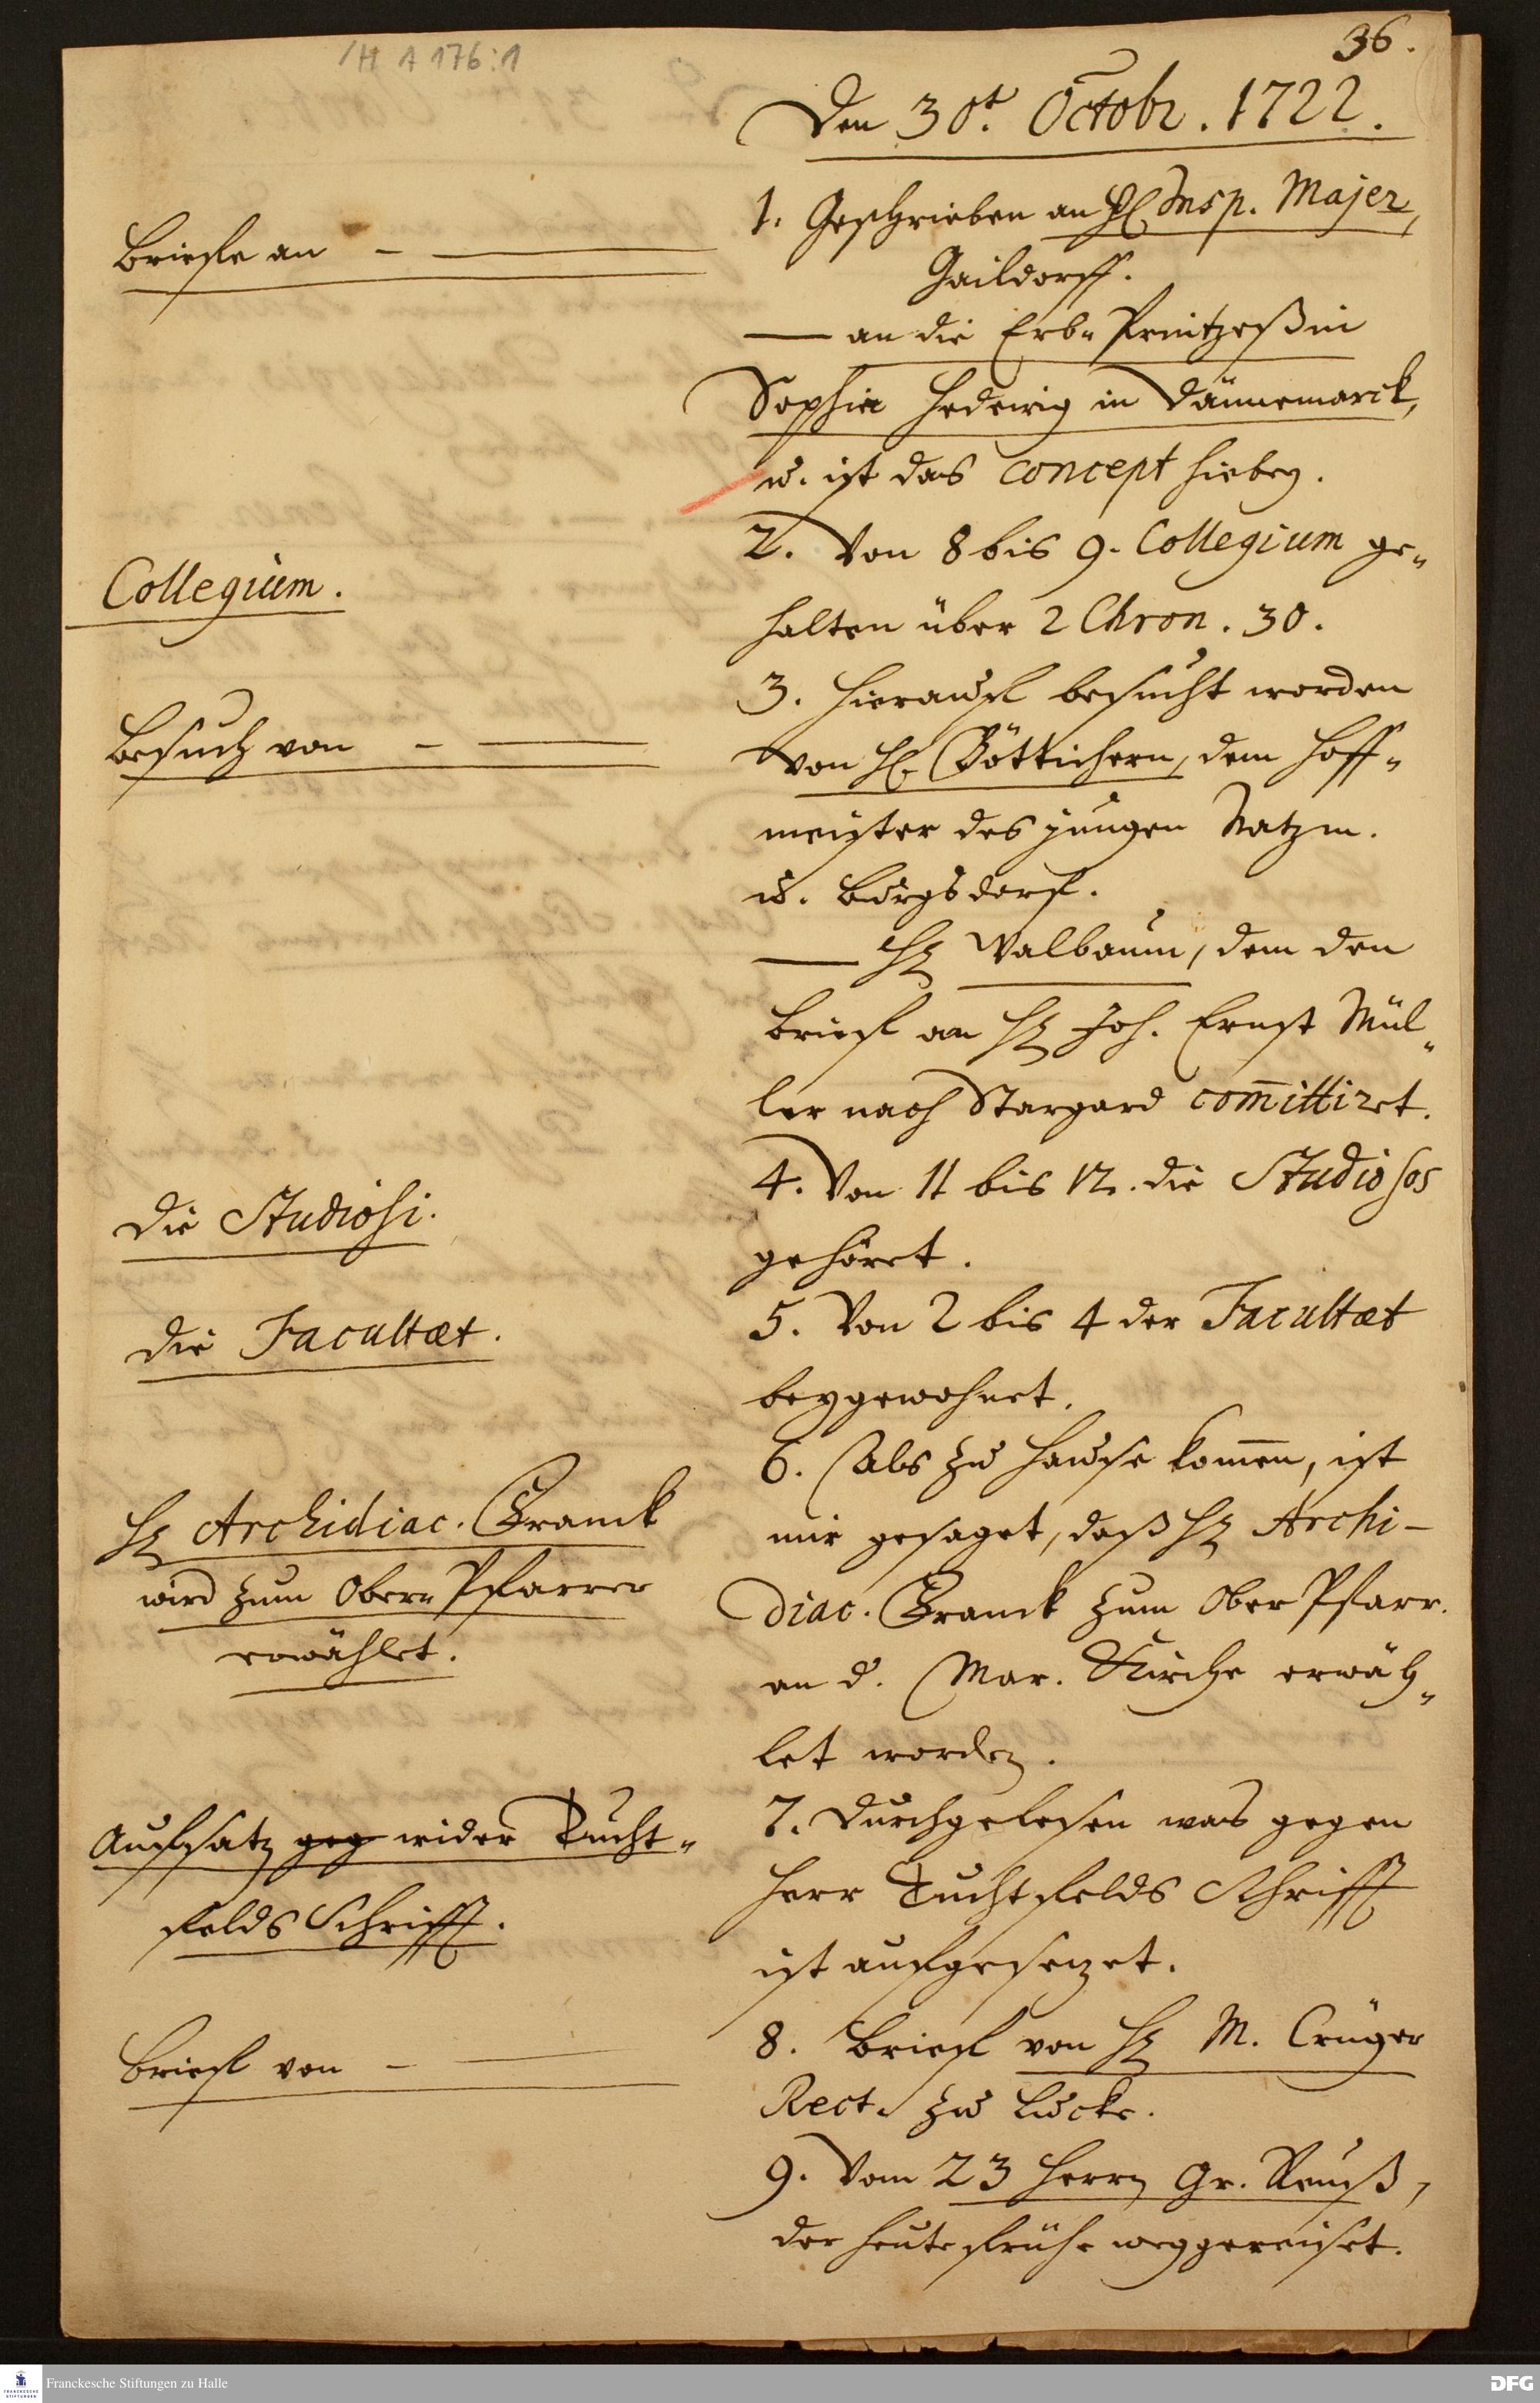 /H A 176:1
36.
Den 30t. Octobr. 1722.
Briefe an – —
1. Geschrieben an H. Insp. Majer,
Gaildorff.
— an die Erb- Printzeßin
Sophia Hedewig in Dännemarck,
u. ist das Concept hiebey.
Collegium.
2. Von 8 bis 9. Collegium ge-
halten über 2 Chron. 30.
Besuch von – —
3. Hierauf besucht worden
von H. Böttichern, dem Hoff-
meister des jungen Natzm.
u. Burgsdorf.
— H. Walbaum, dem den
Brief an H. Joh. Ernst Mül-
ler nach Stargard com̄ittiret.
Die Studiosi.
4. Von 11 bis 12. die Studiosos
gehöret.
Die Facultæt.
5. Von 2 bis 4 der Facultæt
beygewohnet.
H. Archidiac. Franck
wird zum Ober- Pfarrer
erwählet.
6. Als zu Hause kom̄en, ist
mir gesaget, daß H. Archi-
diac. Franck zum Ober Pfarr.
an d. Mar. Kirche erwäh-
let worden.
Auffsatz geg wider Tucht-
felds Schrifft.
7. Durchgelesen was gegen
Herr Tuchtfelds Schrifft
ist aufgesetzet.
Brief von – —
8. Brief von H. M. Crüger
Rect. zu Lucke.
9. Vom 23 Herrn Gr. Reuß,
der heute frühe weggereiset.
Franckesche Stiftungen zu Halle
DFG